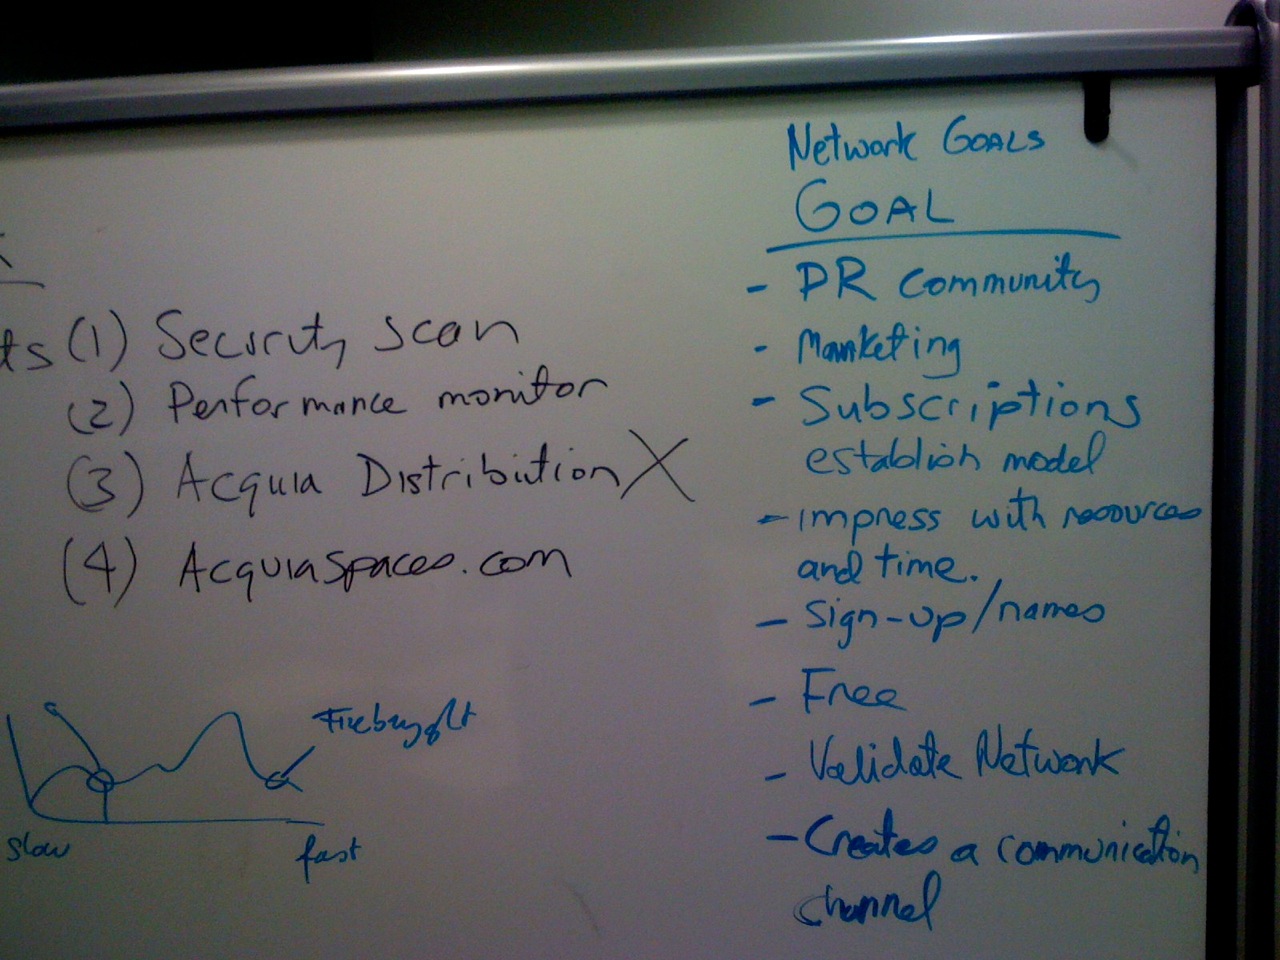 ts (1) Security scan
(2) Performance monitor
(3) Acquia Distribution X
(4) Acquiaspaces.com
slow
fast
Network GOALS
GOAL
- PR Community
- Marketing
- Subscriptions
establish model
- impress with resources
and time.
- Sign-up/names
- Free
- Validate Network
- Creates a communication
channel